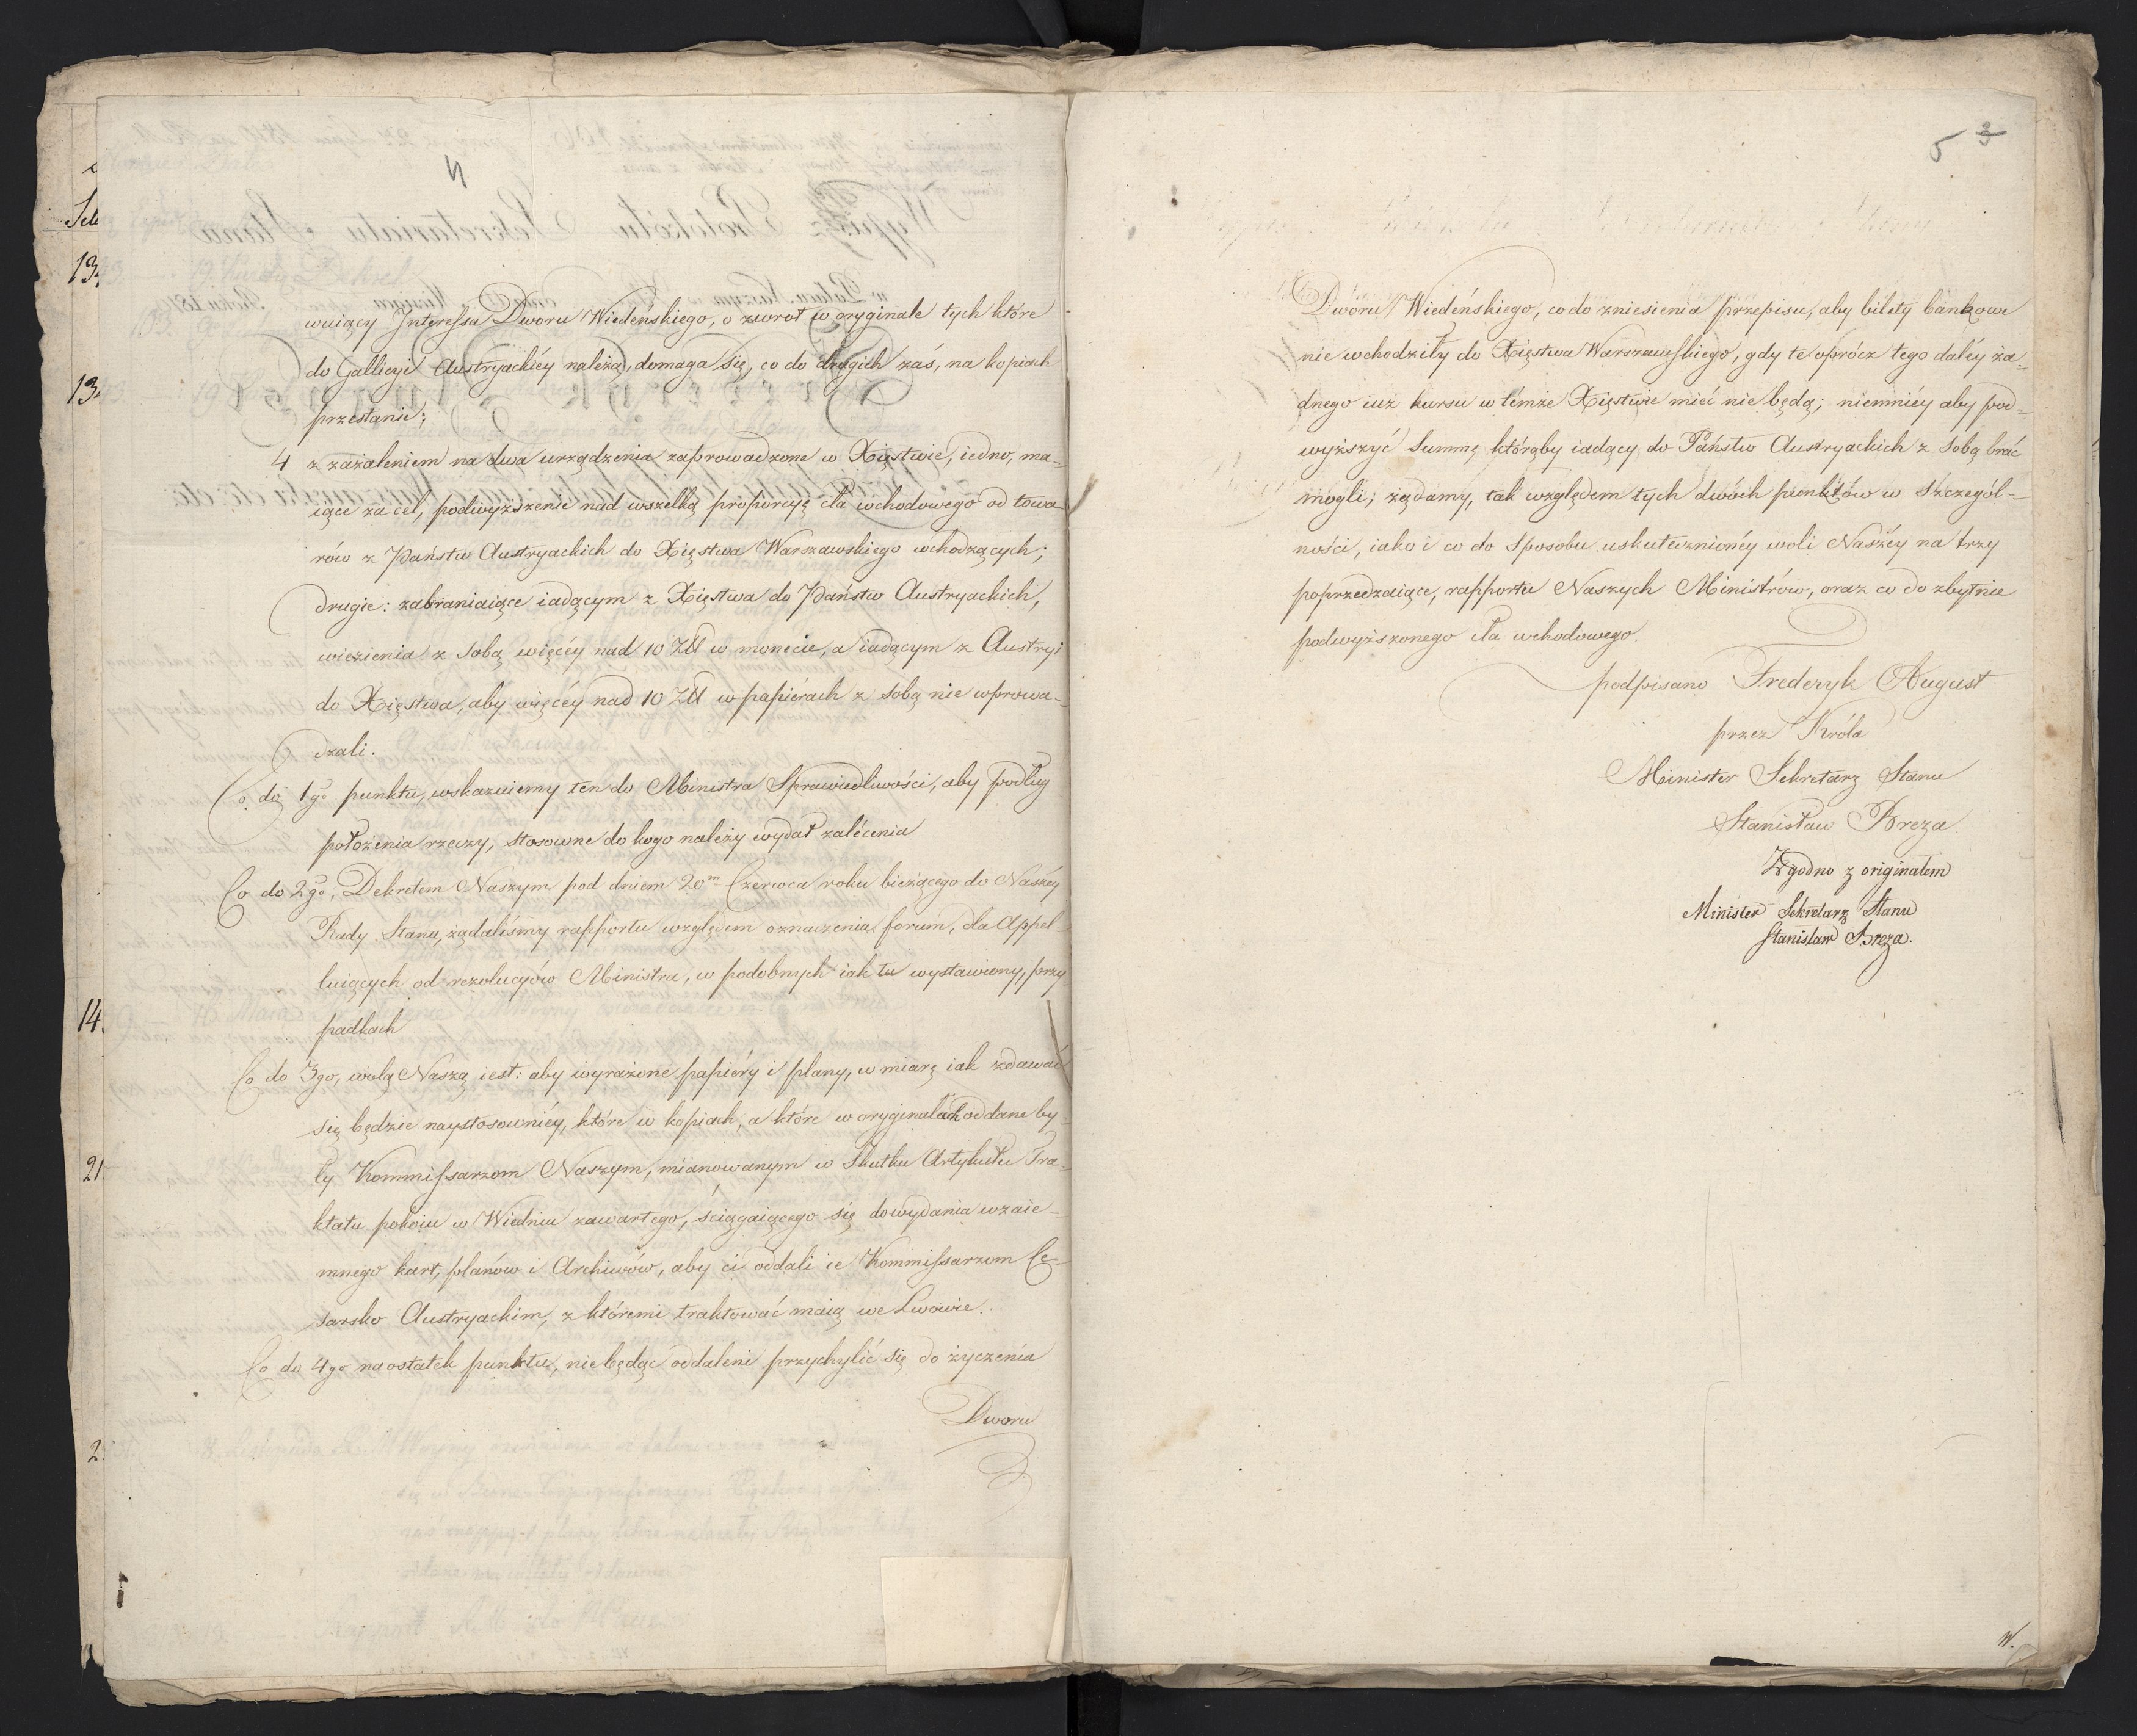 4
wuiący Interessa Dworu Wiedeńskiego, o zwrot w oryginale tych które
do Gallicyi Austryackiéy należą, domaga się, co do drugich zaś, na kopiach
przestanie;
4 z zażaleniem na dwa urządzenia zaprowadzone w Xięstwie, iedno, ma-
iące za cel, podwyższenie nad wszelką proporcyę cła wchodowego od towa
rów z Państw Austryackich do Xięstwa Warszawskiego wchodzących;
drugie: zabraniaiące iadącym z Xięstwa do Państw Austryackich,
wiezienia z sobą więcéy nad 10 Złł w monecie, a iadącym z Austryi
do Xięstwa, aby więcéy nad 10 Złł w papiérach z sobą nie wprowa-
dzali.
Co do 1go punktu, wskazuiemy ten do Ministra Sprawiedliwości, aby podług
położenia rzeczy, stosowne do kogo należy wydał zalécenia
Co do 2go, Dekretem Naszym pod dniem 20m Czerwca roku bieżącego do Naszéy
Rady Stanu, żądaliśmy rapportu względem oznaczenia forum, dla Appel
luiących od rezolucyów Ministra, w podobnych iak tu wystawiony, przy
padkach
Co do 3go, wolą Naszą iest: aby wyrażone papiéry i plany, w miarę iak zdawać
się będzie naystosowniéy, które w kopiach, a które w oryginałach oddane by-
ły Kommissarzom Naszym, mianowanym w Skutku Artykułu Tra-
ktatu pokoiu w Wiedniu zawartego, ściągaiącego się do wydania wzaie-
mnego kart, planów i Archiwów, aby ci oddali ie Kommissarzom Ce-
sarsko Austryackim, z któremi traktować maią we Lwowie.
Co do 4go naostatek punktu, nie będąc oddaleni przychylić się do życzenia
Dworu
5 3
Dworu Wiedeńskiego, co do zniesienia przepisu, aby bilety bankowe
nie wchodziły do Xięstwa Warszawskiego, gdy te oprócz tego daléy ża-
dnego iuż kursu w témże Xięstwie mieć nie będą; niemniéy aby pod-
wyższyć Summę którąby iadący do Państw Austryackich z sobą brać
mogli; żądamy, tak względem tych dwóch punktów w szczegól-
ności, iako i co do Sposobu uskutecznionéy woli Naszéy na trzy
poprzedzaiące, rapportu Naszych Ministrów, oraz co do zbytnie
podwyższonego cła wchodowego.
podpisano Frederyk August
przez Króla
Minister Sekretarz Stanu
Stanisław Breza.
Zgodno z originałem
Minister Sekretarz Stanu
Stanisław Breza.